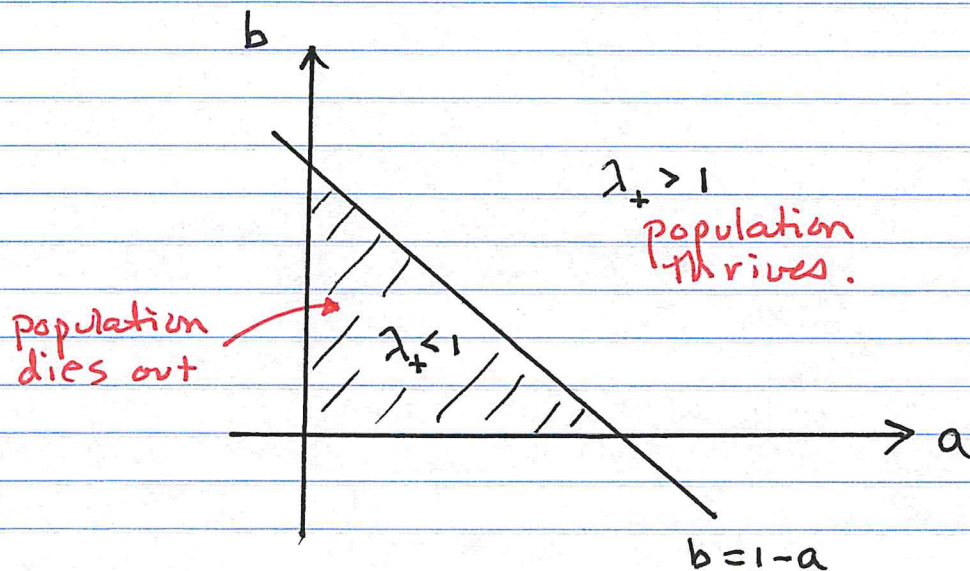 b
λ₊ > 1
population
thrives.
population
dies out
λ₊ < 1
a
b = 1 - a